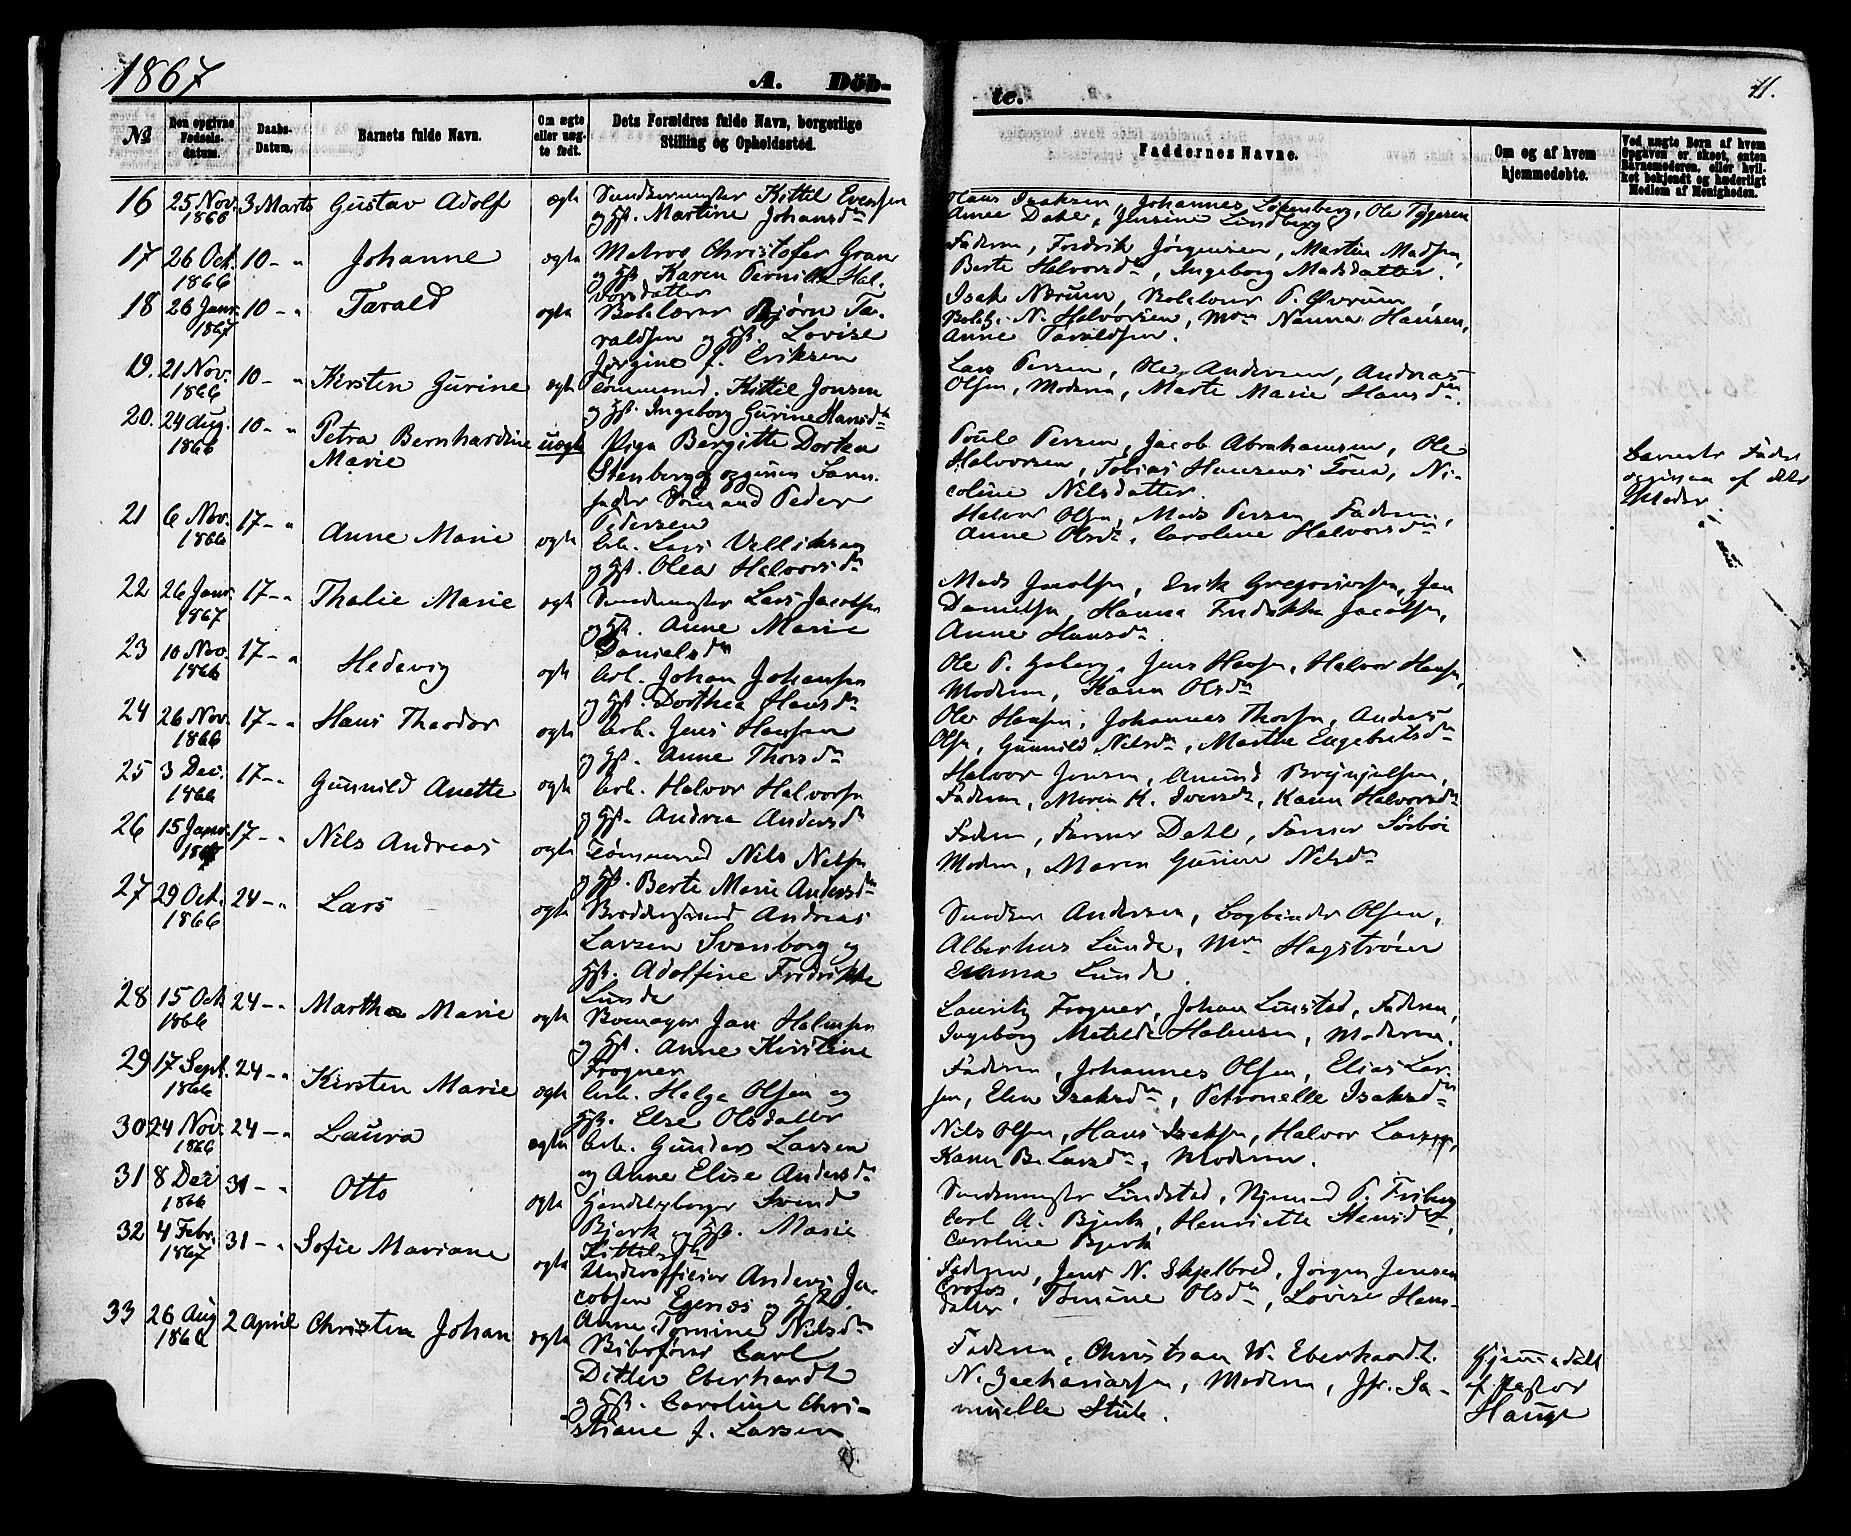 1867
A. Döb-
te.
11.
№
Den opgivne Fødsels-datum.
Daabs-Datum.
Barnets fulde Navn.
Om ægte eller uæg-te født.
Dets Forældres fulde Navn, borgerlige Stilling og Opholdssted.
Faddernes Navne.
Om og af hvem hjemmedøbte.
Ved uægte Børn af hvem Opgaven er skeet, enten Barnemoderen, eller hvil-ket bekjendt og hæderligt Medlem af Menigheden.
16 25 Nov. 1866 3 Marts Gustav Adolf ægte
Kittil Evensen
og Hst. Martine Johansdr
Hans Isaksen, Johannes
Anne Dahl, Jensine Lindberg
17 26 Oct. 1866 10 - " Johanne ægte
Matros Christofer Gran
og Hst. Karen Pernille Hal-
vorsdatter
Faderen, Fredrik Jørgensen, Martin Madsen,
Berte Halvorsdr, Ingeborg Madsdatter.
18 26 Janr. 1867 10 - " Tarald ægte
Bjørn Ta-
raldsen og Hst. Lovise
Jørgine J. Eriksen
Isak Nærum,
N. Halvorsen, Mm Nanna Hansen,
Anne Taraldsen.
19. 21 Nov. 1866 10 - " Kirsten Gurine ægte
Tømmermd. Kittil Jonsen
og Hst. Ingeborg Gurine Hansdr
Lars Persen, Ole Andersen, Andreas
Olsen, Moderen, Marte Marie Hansdr.
20. 24 Aug. 1866 10 - " Petra Bernhardine
Marie
uægte
Pige Bergitte Dortea
Stenberg og
Peder
Pedersen
Poule Persen, Jacob Abrahamsen, Ole
Halvorsen, Tobias Hansens Kone, Ni-
coline Nilsdatter.
Barnets Fader
opgiven af dets
Moder.
21 6 Nov. 1866 17 - " Anne Marie ægte
Arb. Lars
og Hst. Olea Halvorsdr
Halvor Olsen, Mads Persen, Faderen,
Anne Olsdr, Caroline Halvorsdr
22 26 Janr. 1867 17 - " Thalie Marie ægte
Lars Jacobsen
og Hst. Anne Marie
Danielsdr
Mads Jacobsen, Erik Gregoriussen, Jan
Danielsen, Hanna Fredrikke Jacobsen,
Anne Hansdr.
23 10 Nov. 1866 17 - " Hedevig ægte
Arb. Johan Johansen
og Hst. Dorthea Hansdr
Ole P. Jens Hansen, Halvor Hansen,
Moderen, Karen Olsdr
24 26 Nov. 1866 17 - " Hans Theodor ægte
Arb. Jens Hansen
og Hst. Anne Thorsdr
Ole Hansen, Johannes Thorsen, Andreas
Olsen, Gunnild Nilsdr, Marthe Engebretsdr
25 3 Dec. 1866 17 - " Gunnild Anette ægte
Arb. Halvor Halvorsen
og Hst. Andrea Andersdr
Halvor Jensen, Amund Brynjulsen,
Faderen, Maren K. Iversdr, Karen Halvorsdr
26 15 Janr. 1867 17 - " Nils Andreas ægte
Tømmermd Nils Nilsen
og Hst. Berte Marie Andersdr
Faderen, Dahl,
Moderen, Maren Gurine Nilsdr
27 29 Oct. 1866 24 - " Lars ægte
Andreas
Larsen Svanborg og
Hst. Adolfine Fridrikke
Lunde
Andersen, Bogbinder Olsen,
Lunde, Mm Hagstrøm
Emma Lunde.
28 15 Oct. 1866 24 - " Martha Marie ægte
Jan Halvorsen
og Hst. Anne Kirstine
Frogner
Lauritz Frogner, Johan Linstad, Faderen,
Ingeborg Matilde Moderen.
29 17 Sept. 1866 24 - " Kirsten Marie ægte
Arb. Helge Olsen og
Hst. Else Olsdatter
Faderen, Johannes Olsen, Elias Lar-
sen, Elen Isaksdr, Petronelle Isaksdr
30 24 Nov. 1866 24 - " Laura ægte
Arb. Gunder Larsen
og Anne Elise Andersdr
Nils Olsen, Hans Isaksen, Halvor Larsen,
Karen B. Larsdr, Moderen.
31 8 Dec 1866 31 - " Otto ægte
Svend
Bjerk og Hst. Marie
Kittilsdr
Lindstad, P. Friberg
Carl A. Bjerk, Henriette
Caroline Bjerk
32 4 Febr. 1867 31 - " Sofie Mariane ægte
Underofficier Anders Ja-
cobsen Egenes og Hst.
Anne Tomine Nilsdr
Faderen, Jens N. Skjelbred, Jørgen Jensen
Tomine Olsdr, Lovise Hans-
datter
33 26 Aug 1866 2 April Christen Johan ægte
Carl
Ditlev Eberhardt
og Hst. Caroline Chri-
stiane J. Larsen
Faderen, Christian W. Eberhardt.
N. Zachariassen, Moderen, Jfr. Sa-
muelle Stub.
Hjemmedøbt
af Pastor
Hauge